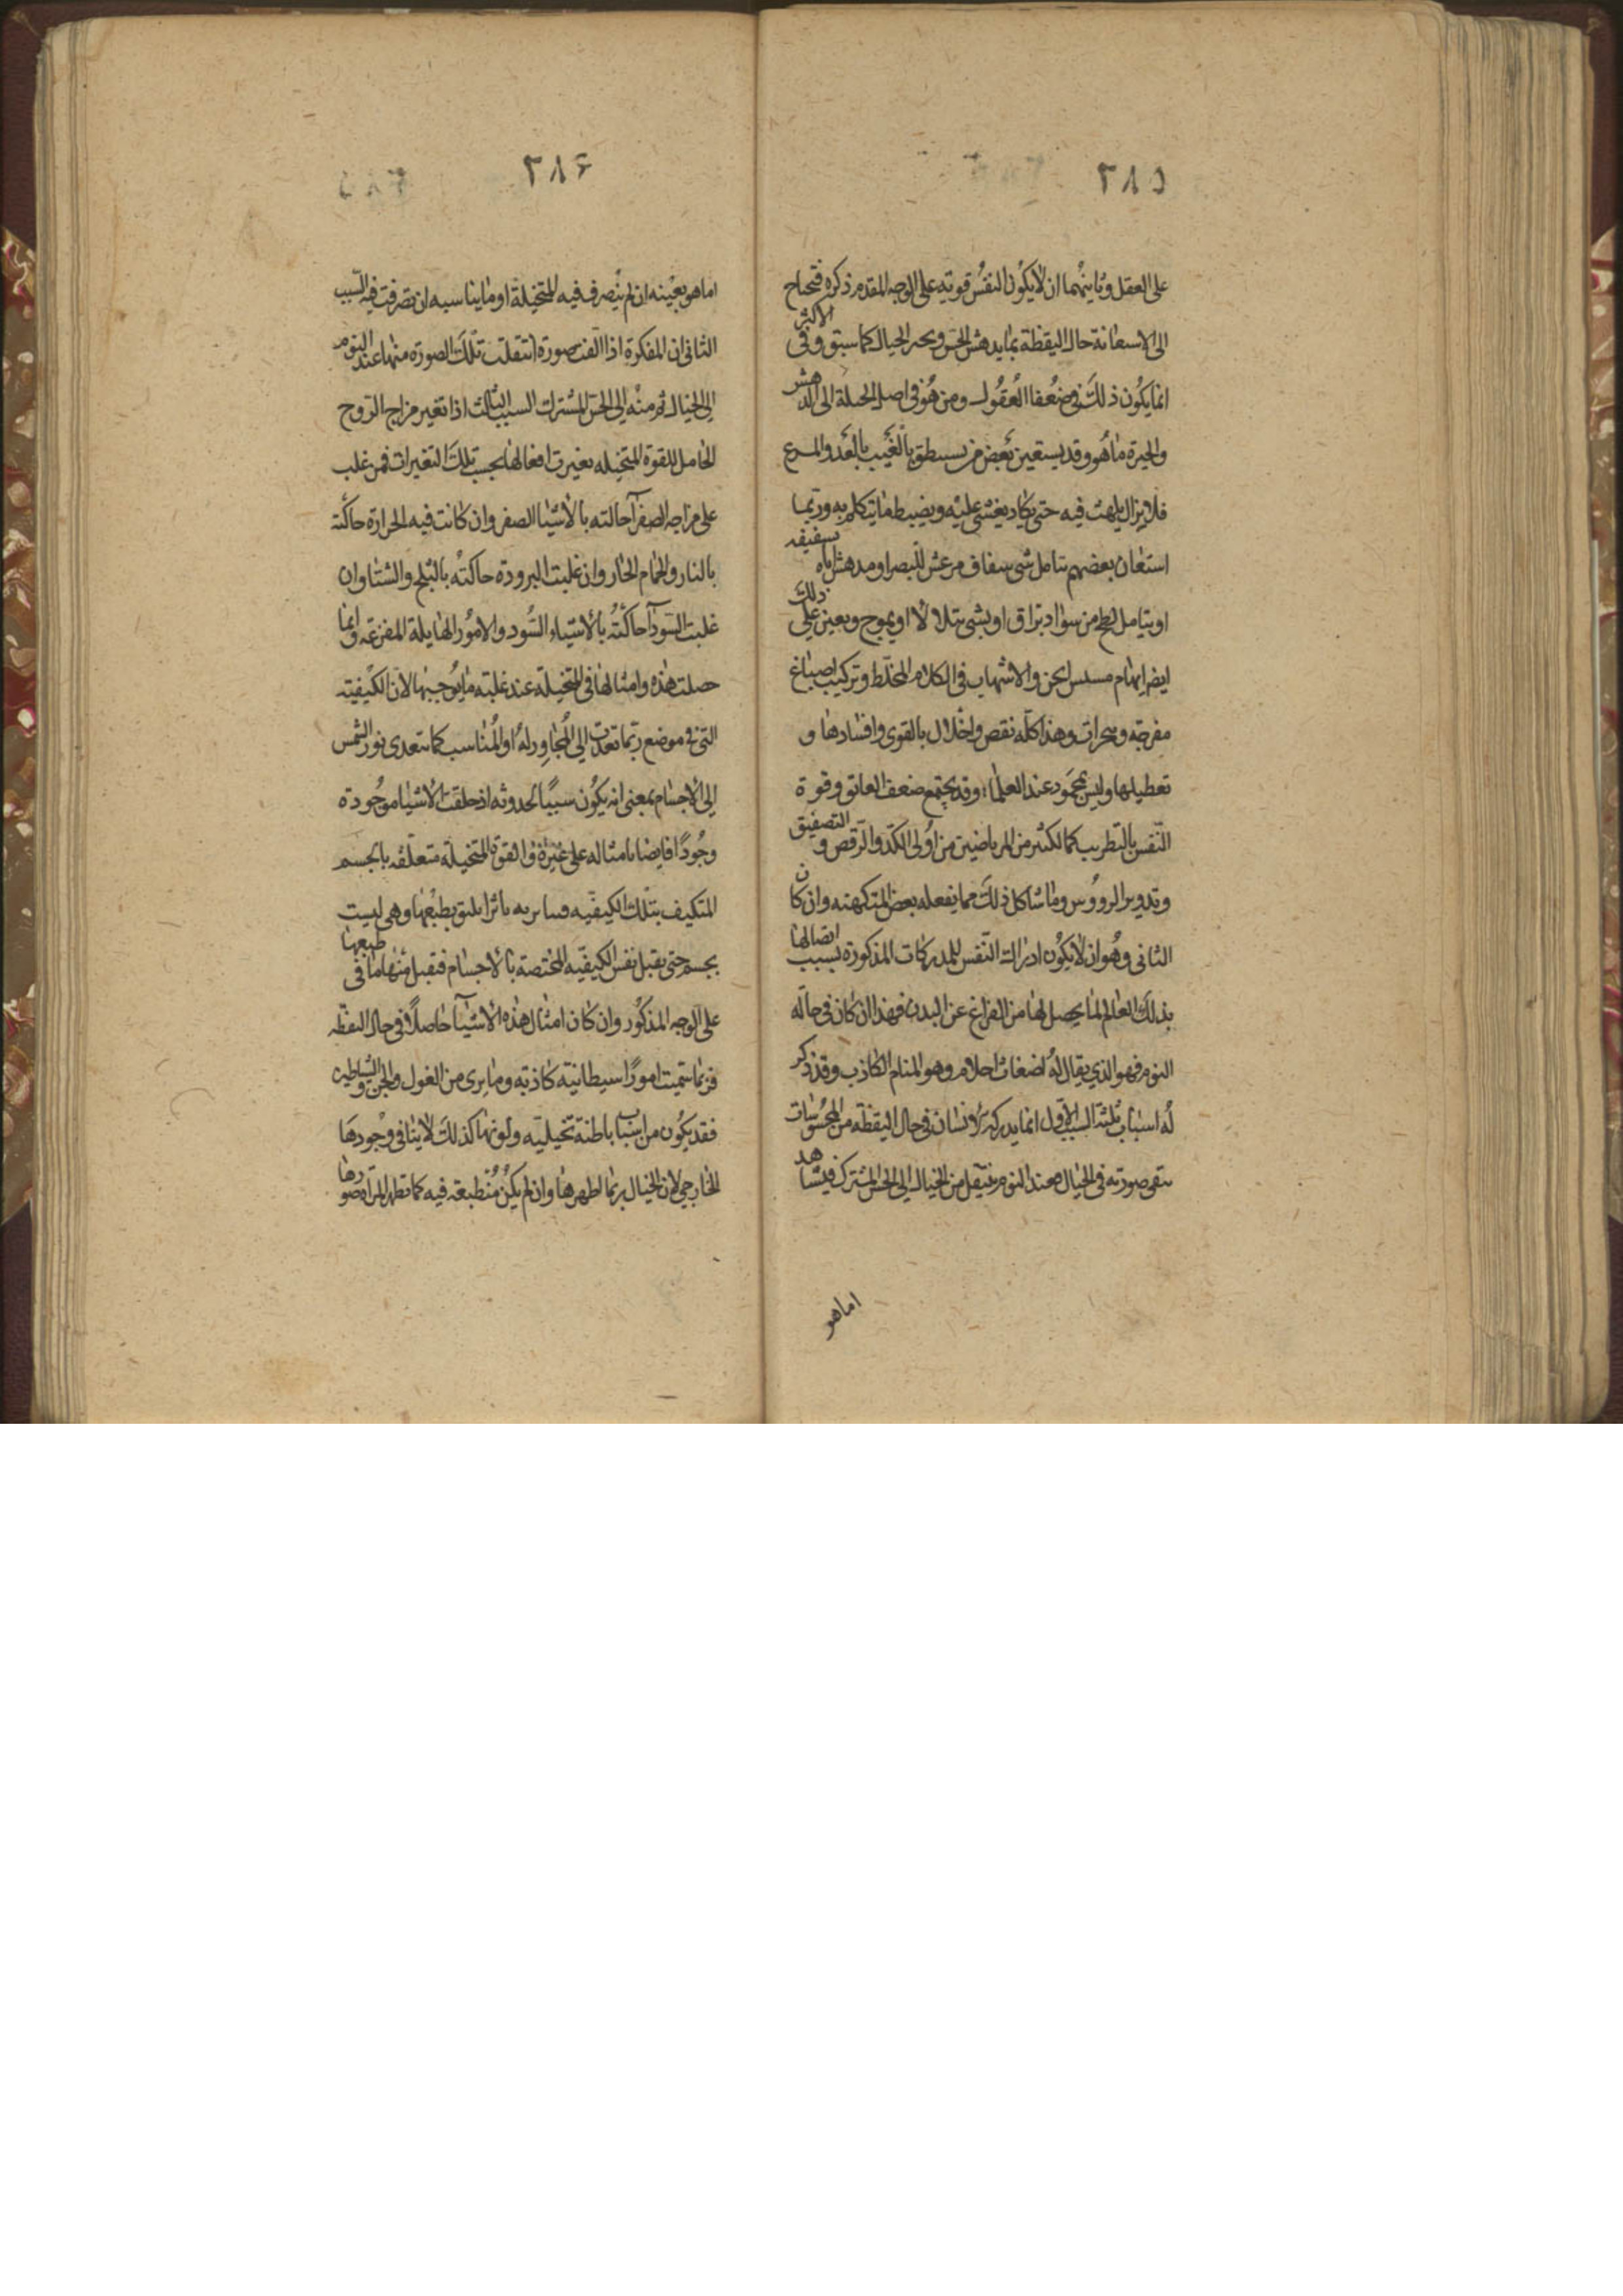 ٣٨٥
على العقل وثانيهما ان لا يكون النفس قوته على الوجه المقدم ذكره فتحتاج
الى الاستعانة حال اليقظة بما يدهش الحس ويحير الخيال كما سبق وفى الاكثر
انما يكون ذلك فى ضعفا العقول ومن هو فى اصل الجبلة الى الدهش
والحيرة ما هو وقد يستعين بعض من يستنطق بالغيب بالعدو المسرع
فلا يزال يلهث فيه حتى يكاد يغشى عليه ويضبط ما يتكلم به وربما
استعان بعضهم بتامل شى شفاف مرعش للبصر او مدهش اياه بشفيفه
او بتامل لطخ من سواد براق او بشى يتلالا او يموج ويعين على ذلك
ايضا ايهام مسيس الجن والاشهاب فى الكلام المخلط وتركيب اصباغ
مفرحه وبخرات وهذا كله نقص واخلال بالقوى وافسادها و
تعطيلها وليس بمحمود عند العلما وقد يجتمع ضعف العائق وقوة
النفس بالتطريب كما لكثير من المرتاضين من اولى الكد والرقص والتصفيق
وتدوير الرووس وما شاكل ذلك مما يفعله بعض المتكهنه وان كان
الثانى وهو ان لا يكون ادراك النفس للمدركات المذكورة بسبب اتصالها
بذلك العالم لما يحصل لها من الفراغ عن البدن فهذا ان كان فى حاله
النوم فهو الذي يقال له اضغاث احلام وهو المنام الكاذب وقد ذكر
له اسباب ثلثة السبب الاول انما يدركه الانسان فى حال اليقظه من المحسوسات
تبقى صورته فى الخيال فعند النوم ينتقل من الخيال الى الحس المشترك فيشاهد
اما هو
٣٨٦
اما هو بعينه ان لم يتصرف فيه المتخيلة او ما يناسبه ان تصرفت فيه السبب
الثانى ان المفكرة اذا الفت صورة انتقلت تلك الصورة منها عند النوم
الى الخيال ثم منه الى الحس المشترك السبب الثالث اذا تغير مزاج الروح
الحامل للقوة المتخيله تغيرت افعالها بحسب تلك التغيرات فمن غلب
على مزاجه الصفرا حاكته بالاشيا الصفر وان كانت فيه الحرارة حاكته
بالنار والحمام الحار وان غلبت البرودة حاكته بالثلج والشتا وان
غلبت السودا حاكته بالاشياء السود والامور الهايلة المفزعة وانما
حصلت هذه وامثالها فى المتخيلة عند غلبته ما يوجبها لان الكيفيته
التى فى موضع ربما تعدت الى المجاور له او المناسب كما يتعدى نور الشمس
الى الاجسام بمعنى انه يكون سببا لحدوثه اذ خلقت الاشيا موجودة
وجودا فايضا بامثاله على غيره والقوة المتخيلة متعلقه بالجسم
المتكيف بتلك الكيفيه فتتاثر به تاثرا يليق بطبعها وهى ليست
بجسم حتى يقبل نفس الكيفيه المختصة بالاجسام فتقبل منها ما فى طبعها
على الوجه المذكور وان كان امثال هذه الاشيا حاصلا فى حال اليقظه
فربما سميت امورا شيطانيته كاذبه وما يرى من الغول والجن والشياطين
فقد يكون من اسباب باطنة تخيليه وكونها كذلك لا ينافى وجودها
الخارجى لان الخيال ربما اظهرها وان لم يكن منطبعة فيه كما تظهر المراة صورها